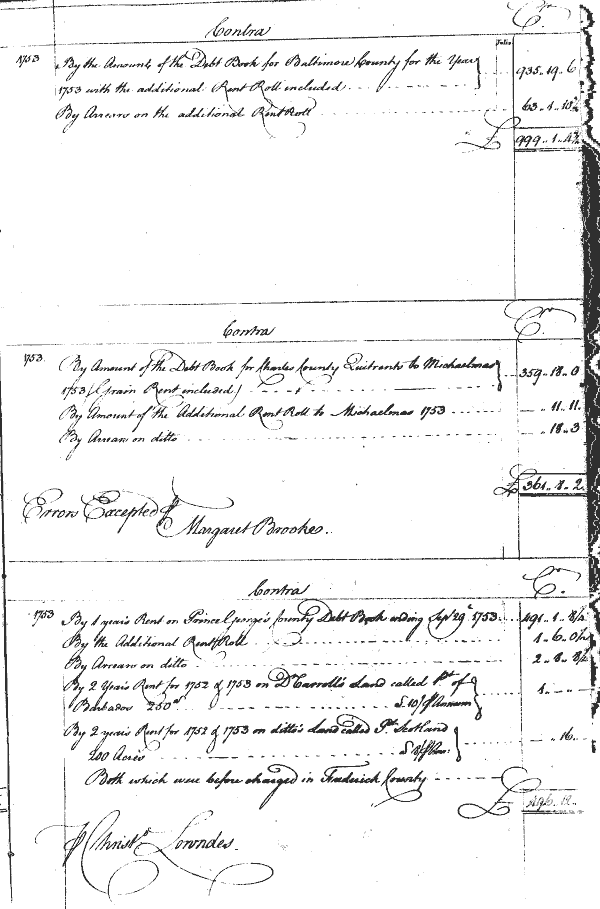 Contra Cr.
Folio
1753 By the Amount of the Debt Book for Baltimore County for the Year
1753 with the additional Rent Roll included 935..19..6
By Arrears on the additional Rent Roll 63..1..10¾
£ 999..1..4¾
Contra Cr.
1753. By Amount of the Debt Book for Charles County Quitrents to Michaelmas
1753 ( prain Rent included ) 359..18..0
By Amount of the Additional Rent Roll to Michaelmas 1753 ..11..11
By Arrears on ditto ..18..3
£ 361..8..2
Errors Excepted ⅌
Margaret Brooke.
Contra Cr.
1753 By 1 year's Rent on Prince George's County Debt Book ending Sepr 29th 1753 491..1..8½
By the Additional Rent Roll 1..6..0½
By Arrears on ditto 2..8..
By 2 Years Rent for 1752 & 1753 on Dr. Carroll's Land called Pt. of
Barbados 250 as. @ 10/ ⅌ Annum 1.. - .. -
By 2 years Rent for 1752 & 1753 on ditto's Land called Pt. Scotland
200 Acres @ 8/ ⅌ Ann: ..16..
Both which were before charged in Frederick County
£ 496..12..
⅌ Christr. Lowndes.